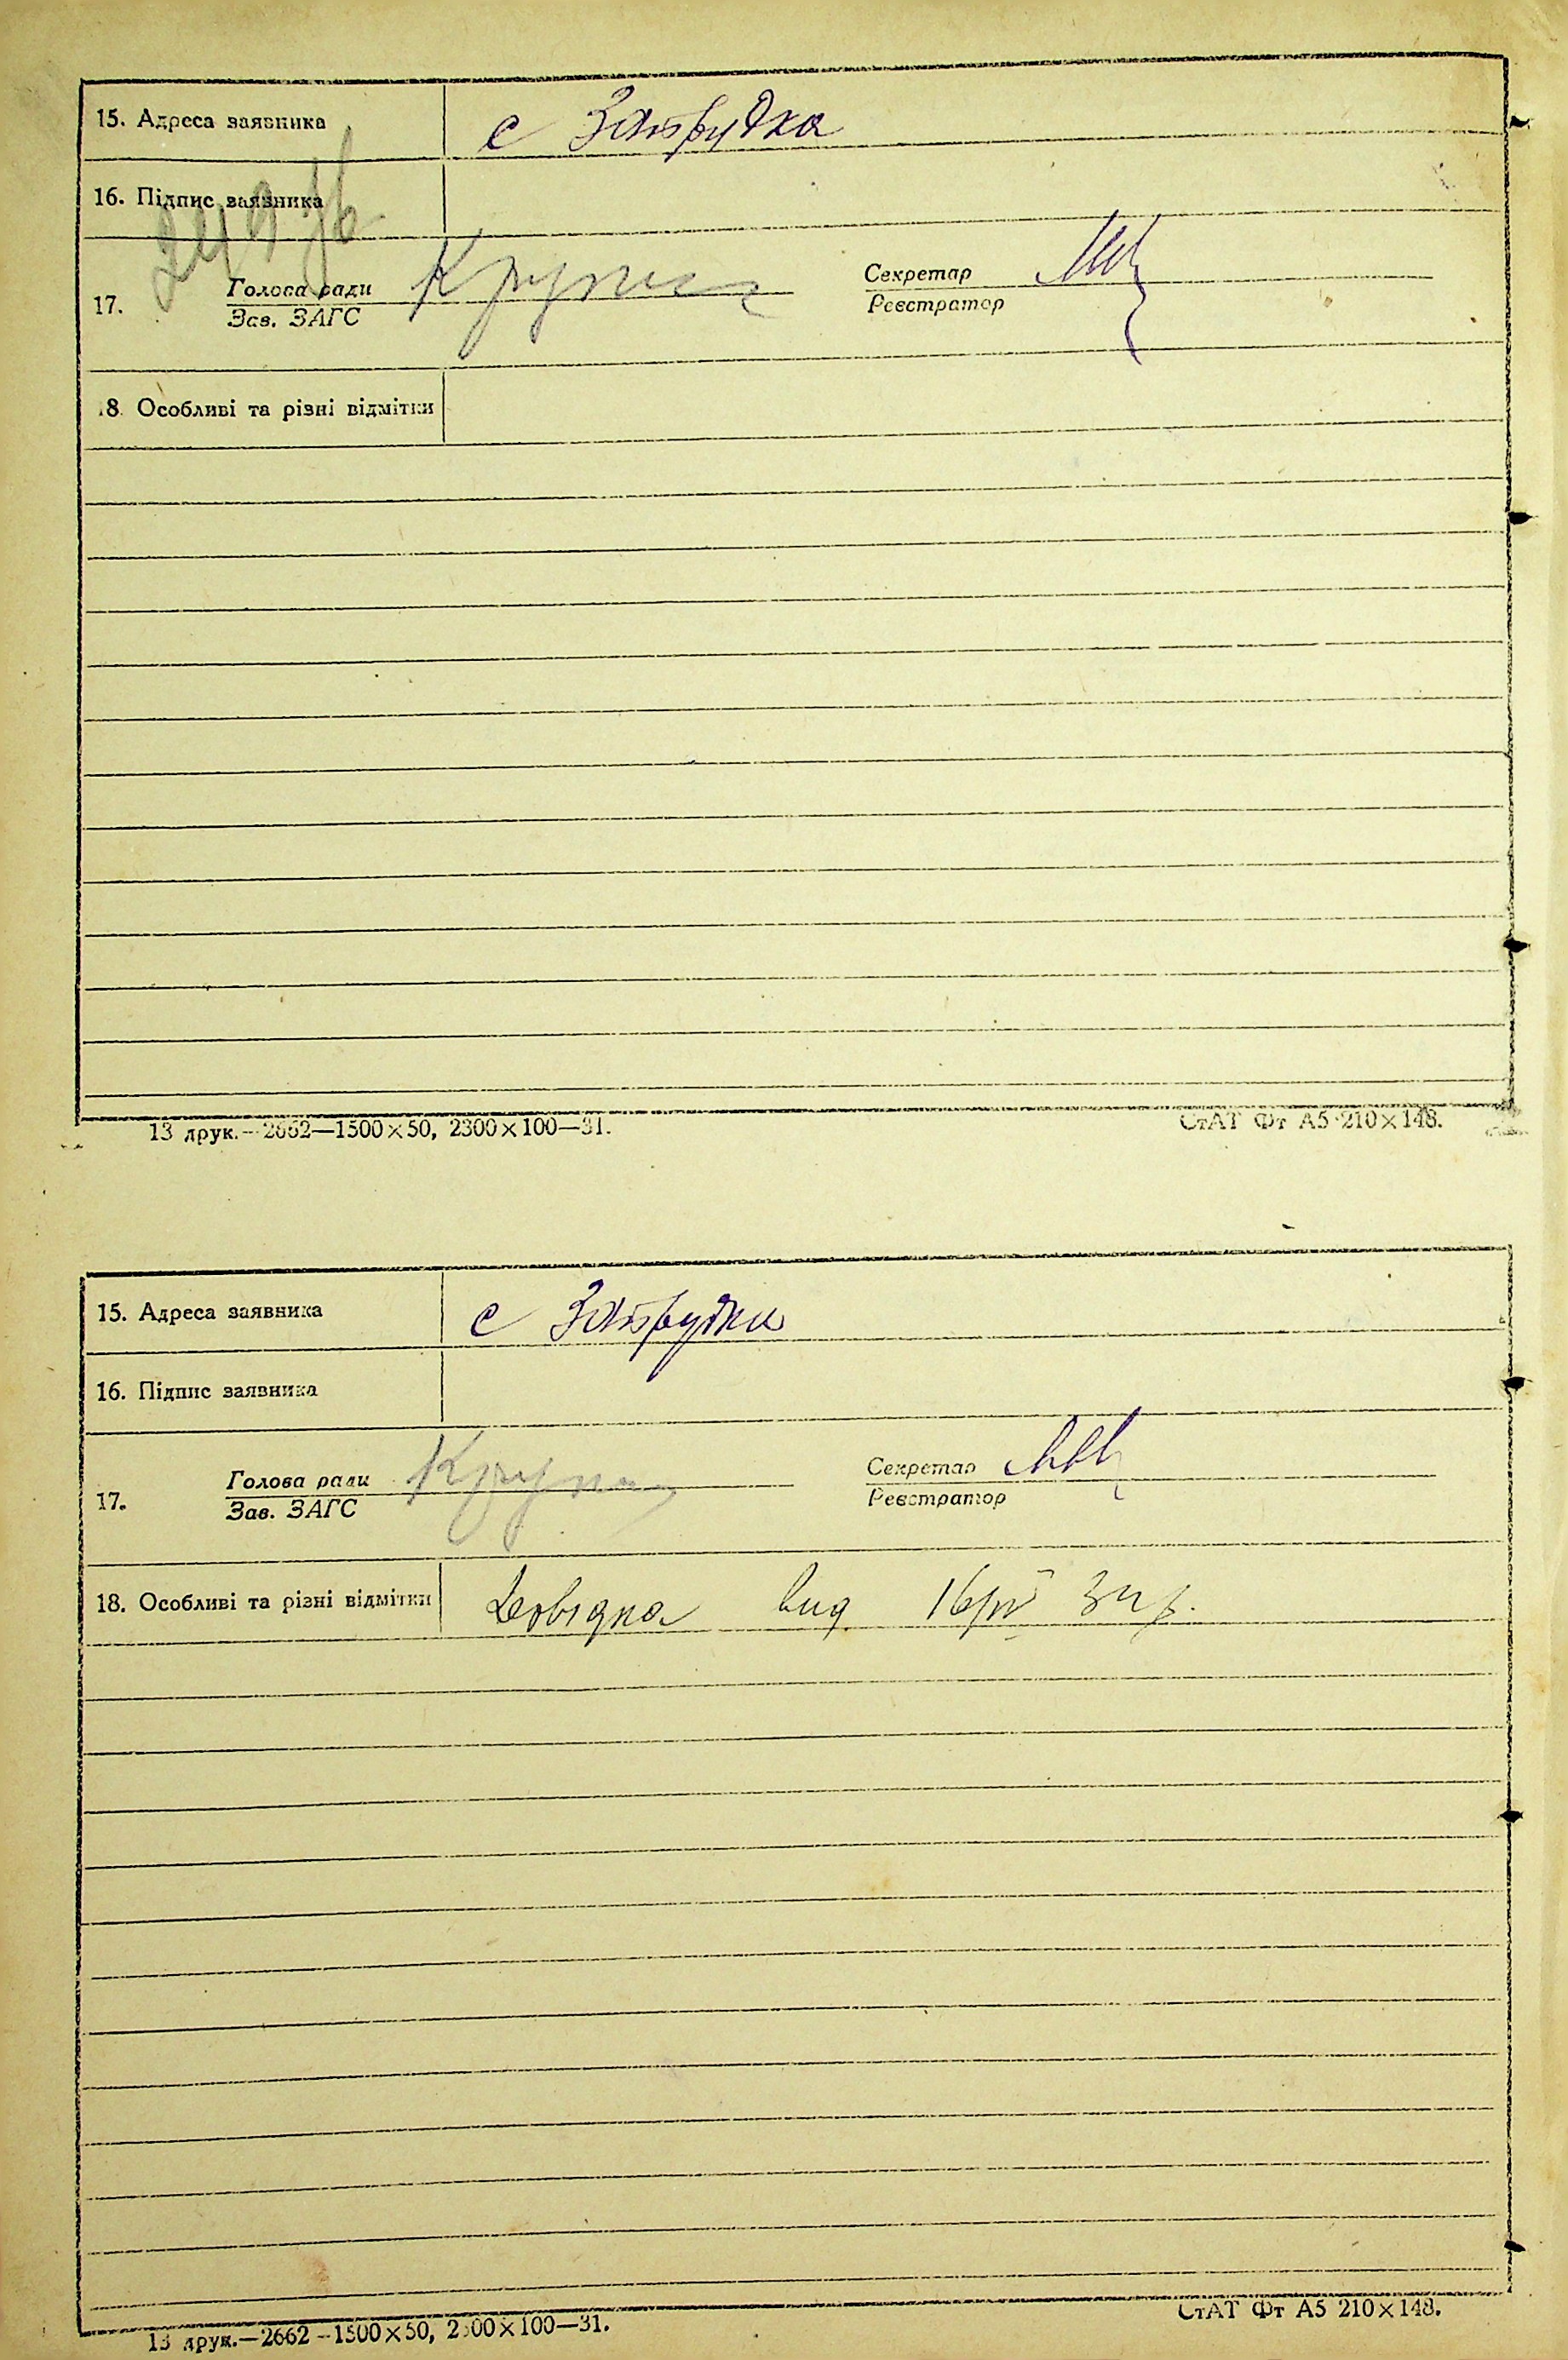 15. Адреса заявника с Затрудка
16. Підпис заявника
17. Голова ради Секретар
Зав. ЗАГС Реєстратор
18. Особливі та різні відмітки
13 друк.—2662—1500×50, 2300×100—31. СтАТ Фт А5 210×148.
15. Адреса заявника с
16. Підпис заявника
17. Голова ради Секретар
Зав. ЗАГС Реєстратор
18. Особливі та різні відмітки Довідка вид 16/IV 32 р.
13 друк.—2662—1500×50, 2300×100—31. СтАТ Фт А5 210×148.